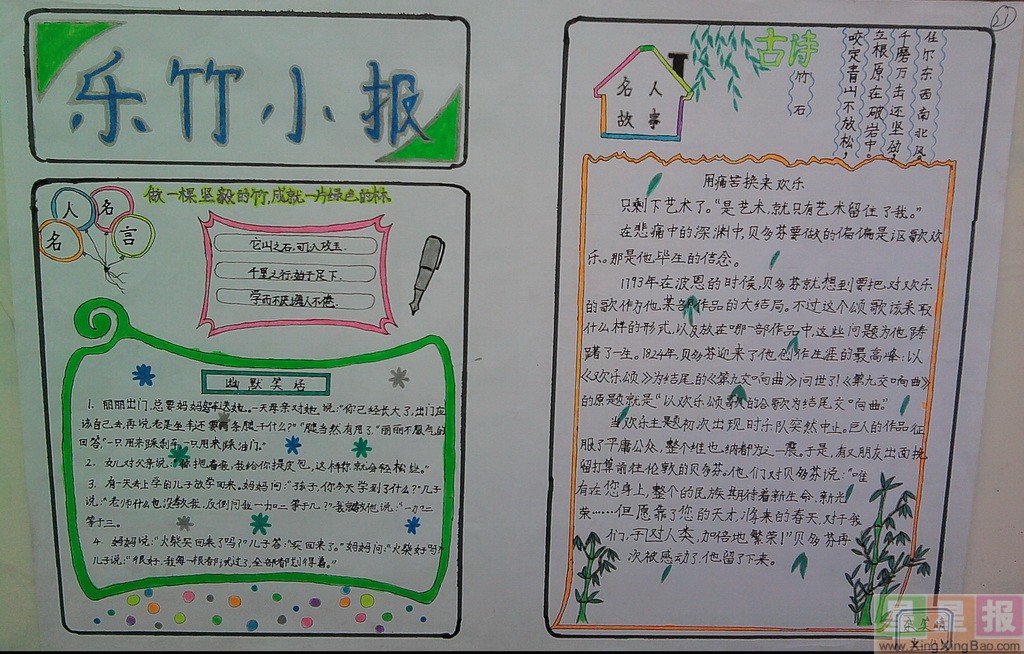 乐竹小报
做一棵坚毅的竹,成就一片绿色的林
名
人
名
言
它山之石,可以攻玉.
千里之行,始于足下.
学而不厌,诲人不倦.
幽默笑话
1. 丽丽出门,总要妈妈车送她。一天母亲对她说:"你已经长大了,出门应
该自己去,再说,老是坐车还要两条腿干什么?""腿当然有用了."丽丽不服气的
回答"一只用来踩刹车,一只用来踩油门。"
2. 女儿对父亲说:"你抱着我,我给你提皮包,这样你就会轻松些。"
3. 有一天去上学的儿子放学回来。妈妈问:"孩子,你今天学到了什么?"儿子
说:"老师什么也没教我,反倒问我一加二等于几?我就告他,说:"一加二
等于三。
4 妈妈说:"火柴买回来了吗?"儿子答:"买回来了。"妈妈问:"火柴好吗?"
儿子说:"很好,我每一根都试过了,全部都划得着。"
21
名人
故事
古诗
竹石
咬定青山不放松,
立根原在破岩中。
千磨万击还坚劲,
任尔东西南北风
用痛苦换来欢乐
只剩下艺术了。"是艺术,就只有艺术留住了我。"
在悲痛中的深渊中,贝多芬要做的偏偏是讴歌欢
乐。那是他毕生的信念。
1793年在波恩的时候,贝多芬就想到要把对欢乐
的歌作为他某部作品的大结局。不过这个颂歌该采取
什么样的形式,以及放在哪一部作品中,这些问题为他踌
躇了一生。1824年,贝多芬迎来了他创作生涯的最高峰:以
《欢乐颂》为结尾的《第九交响曲》问世了!《第九交响曲》
的原题就是"以欢乐颂歌的合歌为结尾交响曲"。
当欢乐主题初次出现时乐队突然中止。巨人的作品征
服了平庸公众,整个维也纳都为之一震。于是,有人朋友出面挽
留打算前往伦敦的贝多芬。他们对贝多芬说:"唯
有在您身上,整个的民族期待着新生命、新光
荣……但愿靠了您的天才,将来的春天,对于我
们,于对人类,加倍地繁荣!"贝多芬再
次被感动了,他留了下来。
星星报
www.XingXingBao.com